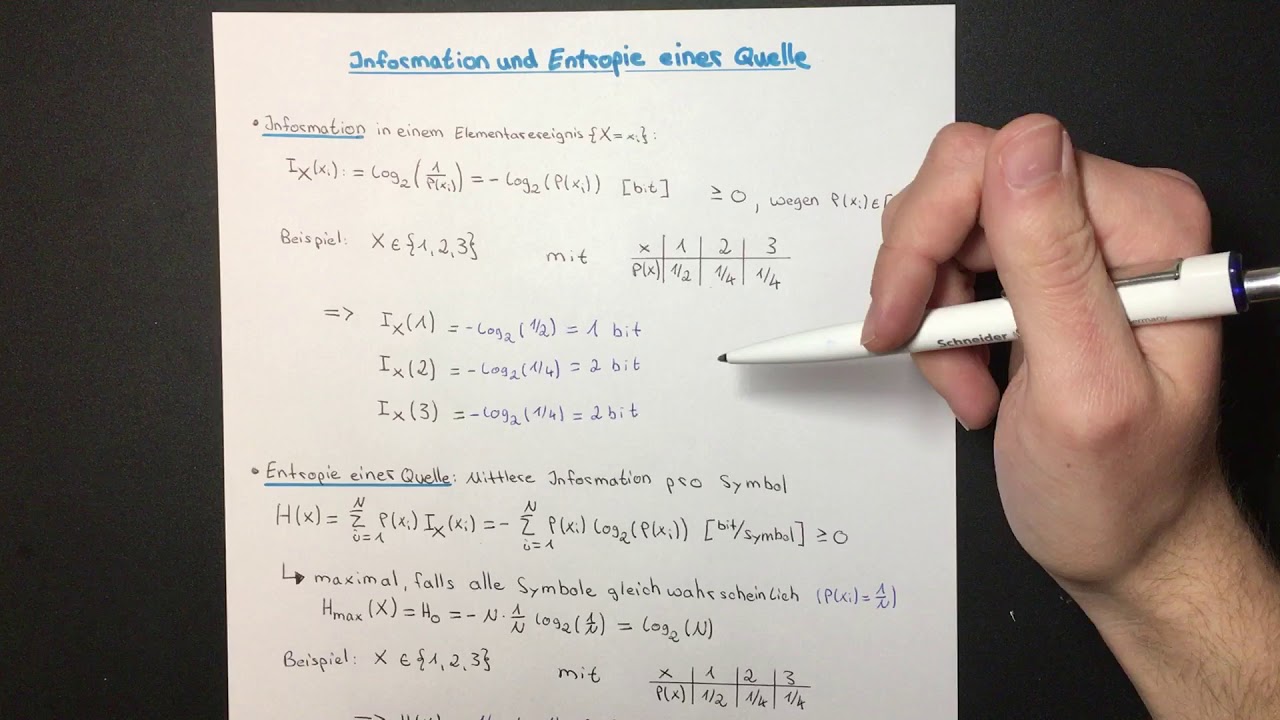 Information und Entropie einer Quelle
• Information in einem Elementarereignis {X = xᵢ}:
I_X(xᵢ) := log₂(1/P(xᵢ)) = - log₂(P(xᵢ)) [bit] ≥ 0, wegen P(xᵢ) ∈ [
Beispiel: X ∈ {1, 2, 3} mit
x | 1 | 2 | 3
P(x) | 1/2 | 1/4 | 1/4
=> I_X(1) = -log₂(1/2) = 1 bit
I_X(2) = -log₂(1/4) = 2 bit
I_X(3) = -log₂(1/4) = 2 bit
Schneider
Germany
• Entropie einer Quelle: Mittlere Information pro Symbol
H(X) = ∑_{i=1}^{N} P(xᵢ) I_X(xᵢ) = - ∑_{i=1}^{N} P(xᵢ) log₂(P(xᵢ)) [bit/Symbol] ≥ 0
↳ maximal, falls alle Symbole gleich wahrscheinlich (P(xᵢ) = 1/N)
H_max(X) = H₀ = - N · 1/N log₂(1/N) = log₂(N)
Beispiel: X ∈ {1, 2, 3} mit
x | 1 | 2 | 3
P(x) | 1/2 | 1/4 | 1/4